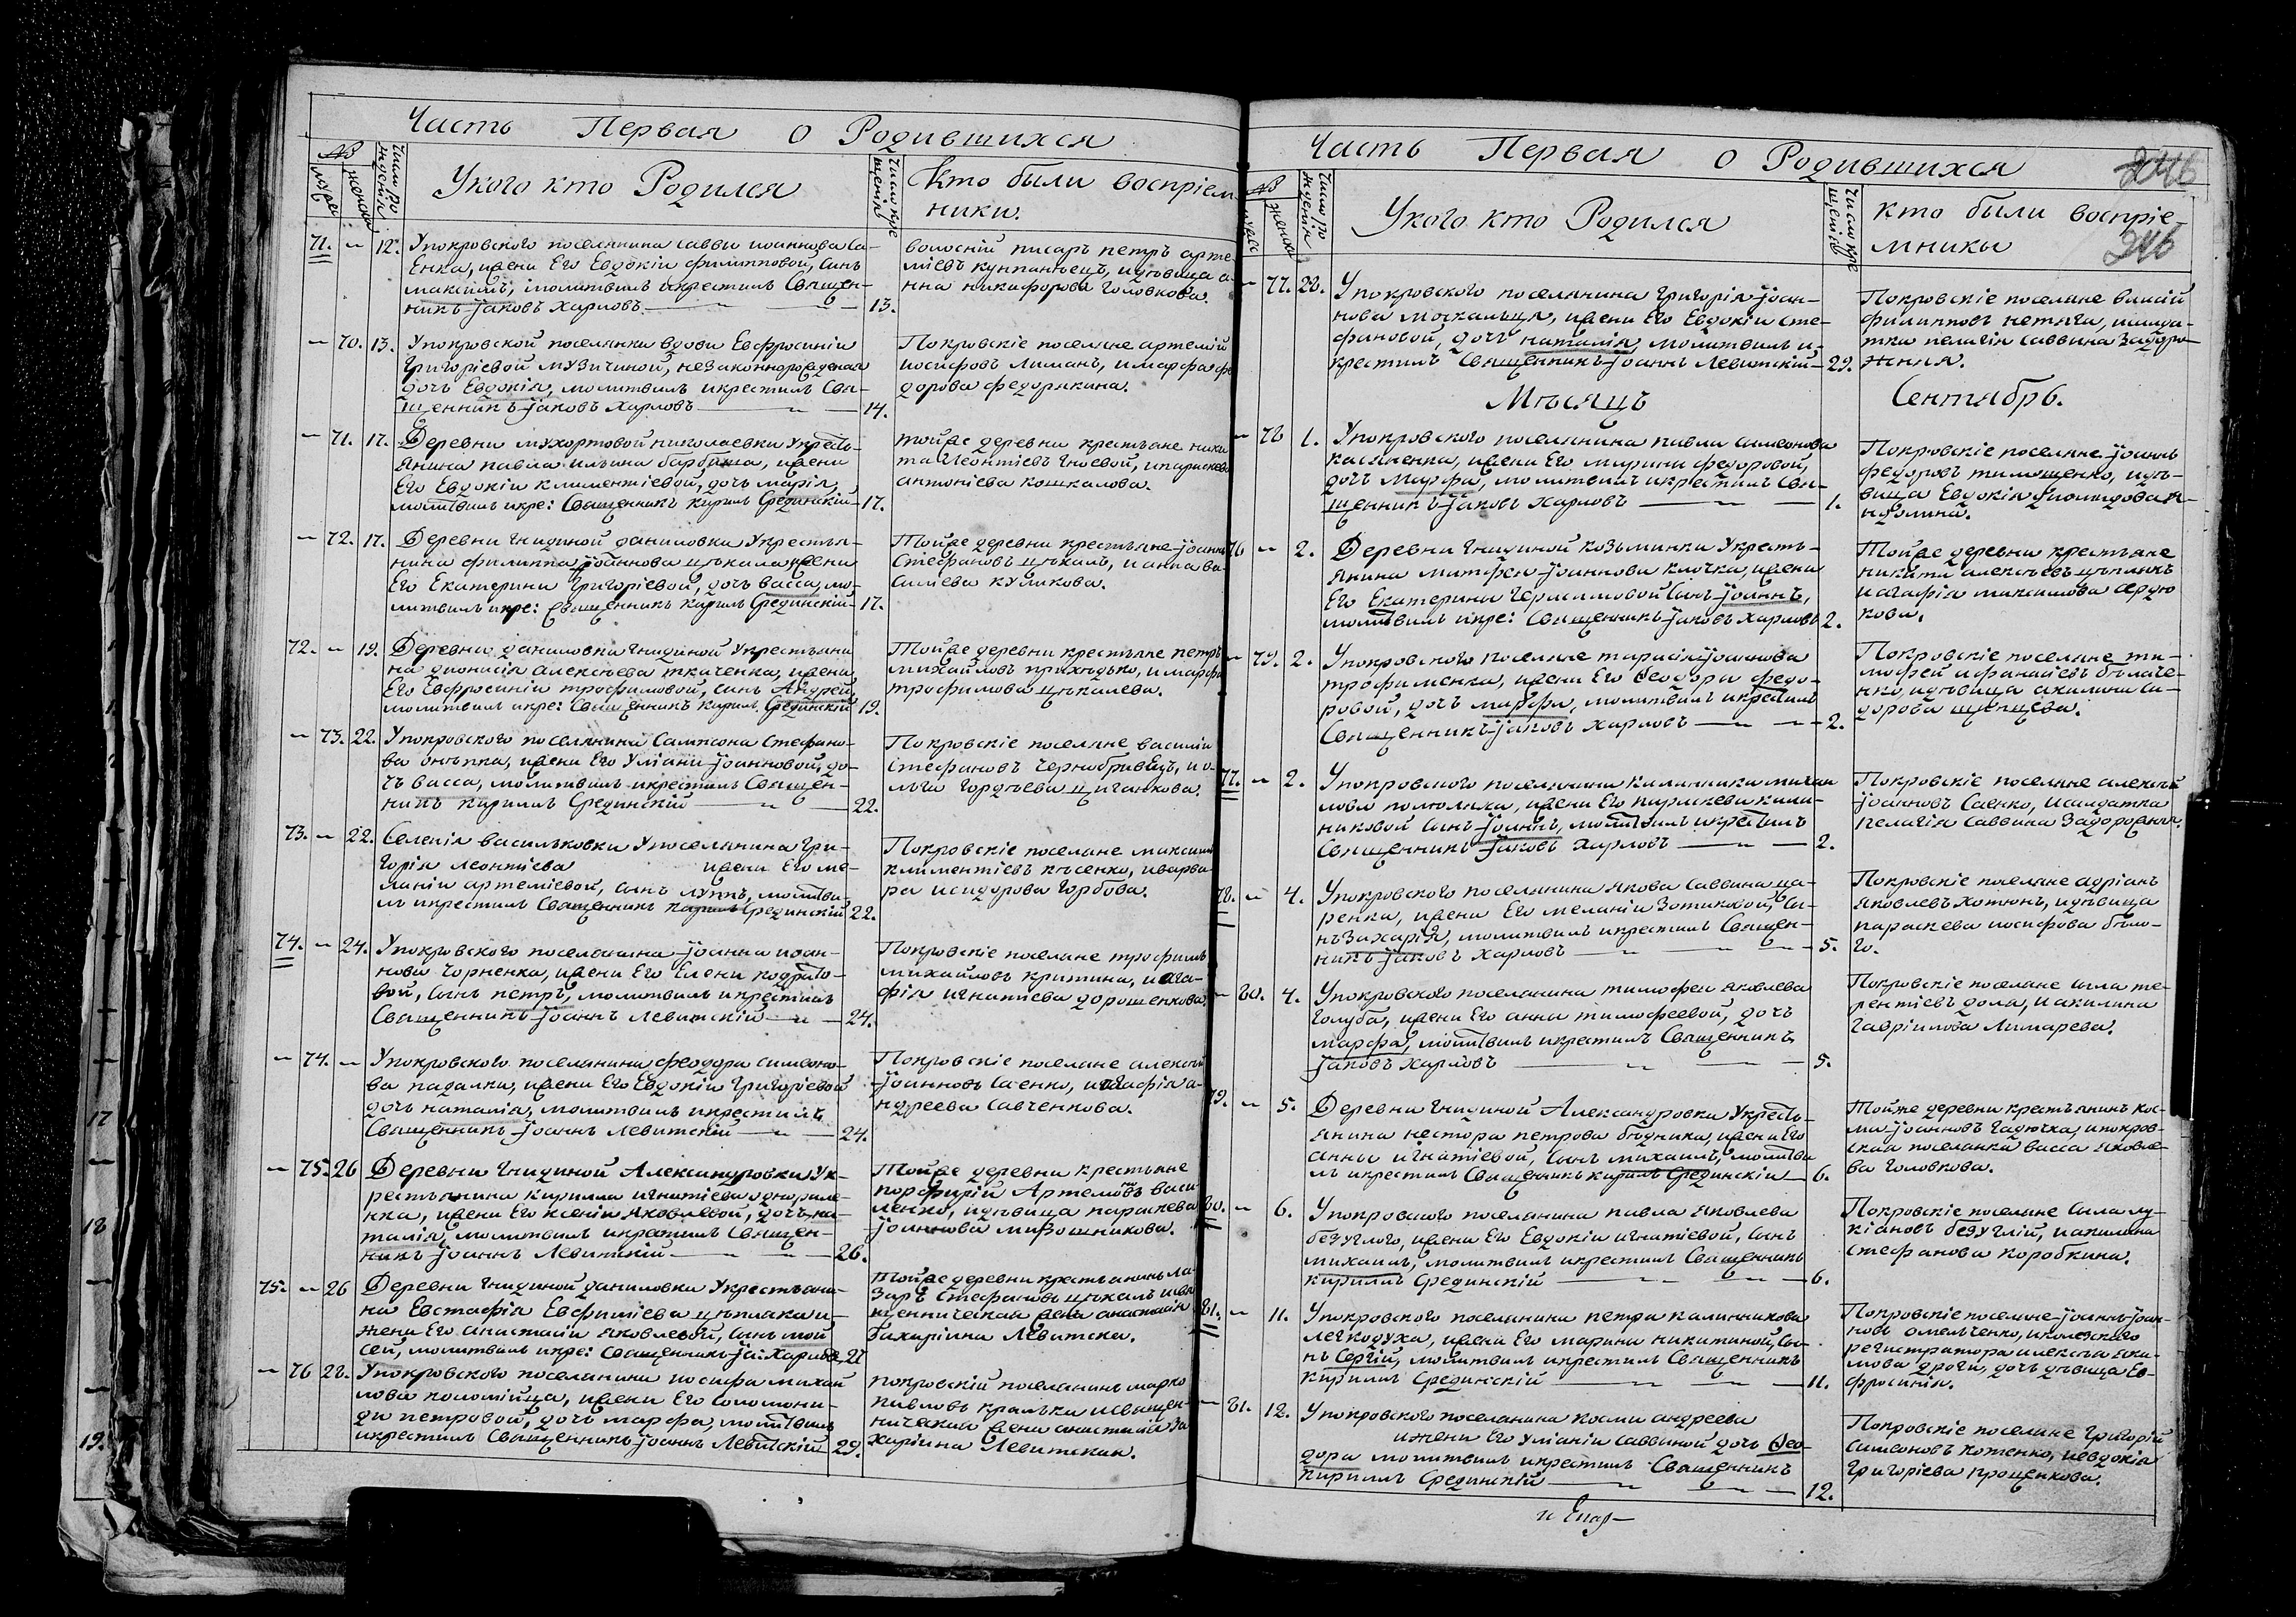 Часть Первая о Родившихся
№
мужес
женска
Число рождения
Укого кто Родился
Число крещенія
Кто были воспріем
ники.
71. — 12. Упокровского поселянина саввы иоаннова са-
Енка, ижени Его Евдокіи филипповой, сынъ
максимъ, молитвилъ икрестилъ Священ-
никъ Іаковъ Харловъ — 13.
волосній писарь петръ арте
міевъ купианъецъ, идѣвица а-
нна никифорова Головкова.
— 70. 13. Упокровской поселянки вдови Евфросиніи
Григоріевой музичиной, незаконнорожденая
дочь Евдокія, молитвилъ икрестилъ Свя-
щенникъ Іаковъ Харловъ — 14.
Покровскіе поселяне артемій
иосифовъ лиманъ, имарфа фе
дорова федоракина.
— 71. 17. Деревни мухортовой николаевки Укресть-
янина павла ильина барбаша, ижени
Его Евдокіи климентіевой, дочь марія,
молитвилъ икре: Священникъ Кирилъ Срединскій — 17.
тойже деревни крестьяне ники
та Леонтіевъ Гноевой, ипараскева
антоніева кошкалова.
— 72. 17. Деревни Гнидиной даниловки Укрестья-
нина филиппа Іоаннова цѣкала ижени
Его Екатерини Григоріевой, дочь васса, мо-
литвилъ икре: Священникъ Кирилъ Срединскій — 17.
Тойже деревни крестьяне Іоаннъ
Стефановъ цѣкалъ, и анна ва-
силіева куликова.
72. — 19. Деревни даниловки Гнидиной Укрестьяни
на діонисія алексѣева ткаченка, ижени
Его Евфросиніи трофимовой, сынъ Андрей,
молитвилъ икре: Священникъ Кирилъ Срединскій 19.
Тойже деревни крестьяне петръ
михайловъ приходько, имарфа
трофимова цѣкалева.
— 73. 22. Упокровского поселянина Сампсона Стефано-
ва онѣпка, ижени Его Уліяни Іоанновой, до-
чь васса, молитвилъ икрестилъ Священ-
никъ Кириллъ Срединскій — 22.
Покровскіе поселяне василій
Стефановъ Чернобривецъ, и о-
льга Гордѣева циганкова.
73. — 22. Селенія васильковки Упоселянина Гри-
горія Леонтіева ижени Его ме-
ланіи артеміевой, сынъ луппъ, молитви
лъ икрестилъ Священникъ Кирилъ Срединскій 22.
Покровскіе поселяне максимъ
климентіевъ кѣсенко, иварва-
ра исидорова Горбова.
74. — 24. Упокровского поселянина Іоанна иоан-
нова Чорненка, ижени Его Елени кодрато-
вой, сынъ петръ, молитвилъ икрестилъ
Священникъ Іоаннъ Левитскій — 24.
Покровскіе поселяне трофимъ
михайловъ притина, и ага-
фія игнатіева дорошенкова.
— 74. — Упокровского поселянина феодора симеоно-
ва падалки, ижени Его Евдокіи Григоріевой
дочь наталія, молитвилъ икрестилъ
Священникъ Іоаннъ Левитскій — 24.
Покровскіе поселяне алексѣй
Іоанновъ Саенко, иагафія а-
ндреева Савченкова.
— 75. 26 Деревни Гнидиной Александровки Ук-
рестьянина кирилла игнатіева однорале-
нка, ижени Его ксеніи Яковлевой, дочь на-
талія, молитвилъ икрестилъ Священ-
никъ Іоаннъ Левитскій — 26.
Тойже деревни крестьяне
порфирій Артемовъ васи
ленко, идѣвица параскева
Іоаннова мирошникова.
75. — 26 Деревни Гнидиной даниловки Укрестьяни-
на Евстафія Евфиміева цѣплака и-
жени Его анастасіи яковлевой, сынъ мой
сей, молитвилъ икре: Священникъ Іа: Харловъ 27
Тойже деревни крестьянинъ ла-
заръ Стефановъ цѣкалъ исвя
щенническая жена анастасія
Захаріина Левитска.
— 76 28. Упокровского поселянина иосифа михай
лова коломійца, ижени Его Соломони-
ди петровой, дочь марфа, молитвилъ
икрестилъ Священникъ Іоаннъ Левитскій 29.
покровскій поселянинъ марко
павловъ кралька исвящен-
ническая жена анастасія За
харіина Левитская.
Часть Первая о Родившихся
246
246
№
мужес
женска
Число рождения
Укого кто Родился
Число крещенія
кто были воспріе-
мники
— 77. 28. Упокровского поселянина Григорія Іоан-
нова москальця, ижени Его Евдокіи Сте-
фановой, дочь наталія, молитвилъ и-
крестилъ Священникъ Іоаннъ Левитскій — 29.
Покровскіе поселяне василій
филипповъ нетяга, исалда-
тка пелагія саввина Задоро-
жняя.
Мѣсяцъ Сентябрь.
— 78 1. Упокровского поселянина павла симеонова
касяненка, ижени Его марини федоровой,
дочь марфа, молитвилъ икрестилъ Свя-
щенникъ Іаковъ Харловъ — 1.
Покровскіе поселяне Іоаннъ
федоровъ тимошенко, идѣ-
вица Евдокія
76 — 2. Деревни Гнидиной козьминки Укресть-
янина митфея Іоаннова клочка, ижени
Его Екатерини Герасимовой сынъ Іоаннъ,
молитвилъ икре: Священникъ Іаковъ Харловъ 2.
Тойже деревни крестьяне
никита алексѣевъ цѣплякъ
иагафія максимова сердю
кова.
— 79. 2. Упокровского поселяне тарасія Іоаннова
трофименка, ижени Его Феодори федо-
ровой, дочь марфа, молитвилъ икрестилъ
Священникъ Іаковъ Харловъ — 2.
Покровскіе поселяне ти-
мофей афанасіевъ бѣлаче-
нко, идѣвица акилина Си-
дорова
77. — 2. Упокровского поселянина калинника михаи
лова полюляха, ижени Его параскеви кали-
никовой сынъ Іоаннъ, молитвилъ икрестилъ
Священникъ Іаковъ Харловъ — 2.
Покровскіе поселяне алексѣй
Іоанновъ Саенко, исалдатка
пелагія саввина Задорожная.
78. — 4. Упокровского поселянина якова саввина ца-
ренка, ижени Его меланіи Зотиковой, сы-
нъ Захарія, молитвилъ икрестилъ Священ-
никъ Іаковъ Харловъ — 5.
Покровскіе поселяне адріанъ
яковлевъ хотюнъ, идѣвица
параскева иосифова бѣло-
го.
— 80. 4. Упокровского поселянина тимофея яковлева
Голуба, ижени Его анни тимофеевой, дочь
марфа, молитвилъ икрестилъ Священникъ
Іаковъ Харловъ — 5.
Покровскіе поселяне сила те-
рентіевъ дола, и акилина
Гавріилова Лимарева.
79. — 5. Деревни Гнидиной Александровки Укресть-
янина нестора петрова бѣдника, ижени Его
анны игнатіевой, сынъ михаилъ, молитви
лъ икрестилъ Священникъ Кирилъ Срединскій — 6.
Тойже деревни крестьянинъ кос-
ма Іоанновъ Гадючка, ипокров-
ская поселянка васса яковле-
ва Головкова.
80. — 6. Упокровского поселянина павла яковлева
безуглого, ижени Его Евдокіи игнатіевой, сынъ
михаилъ, молитвилъ икрестилъ Священникъ
Кирилъ Срединскій — 6.
Покровскіе поселяне Сила лу-
кіановъ безуглій, иакилина
Стефанова коробкина.
81. — 11. Упокровского поселянина петра калинникова
легкодуха, ижени Его марини никитиной, сы-
нъ Сергій, молитвилъ икрестилъ Священникъ
Кириллъ Срединскій — 11.
Покровскіе поселяне Іоаннъ Іоан-
новъ омельченко, иколезского
регистратора алексѣя яки-
мова дроги, дочь дѣвица Ев-
фросинія.
— 81. 12. Упокровского поселянина косми андреева
ижени Его Уліаніи саввиной дочь Фео-
дора молитвилъ икрестилъ Священникъ
Кириллъ Срединскій — 12.
Покровскіе поселяне Григорій
Симеоновъ котенко, иевдокія
Григоріева проценкова.